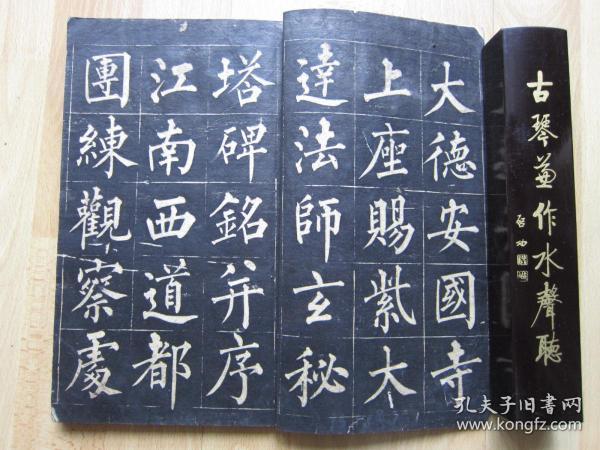 古琴兼作水聲聽
启功
大德安國寺
上座賜紫大
達法師玄秘
塔碑銘并序
江南西道都
團練觀察處
孔夫子旧书网
www.kongfz.com